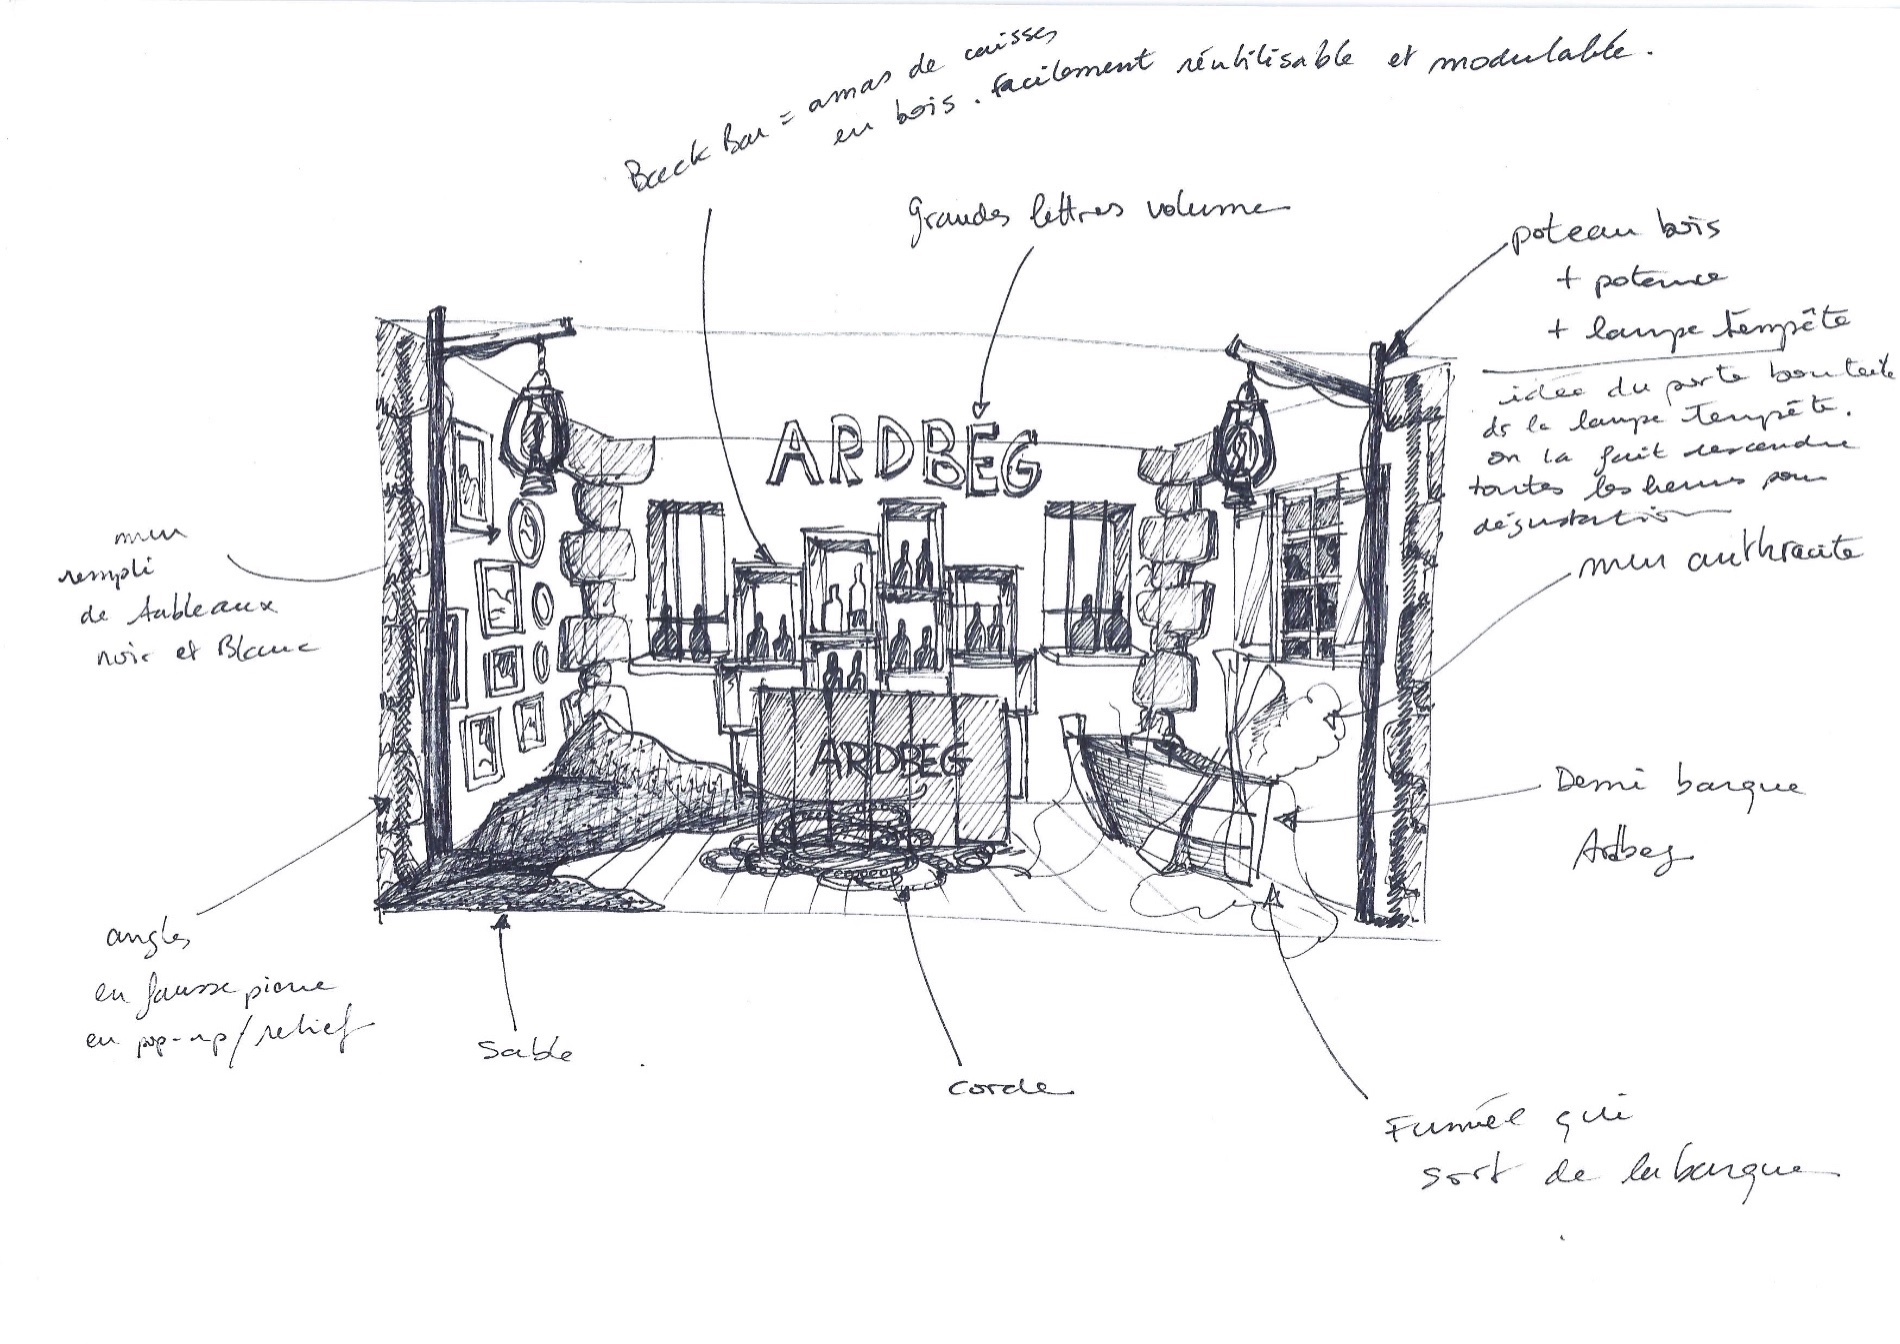 Back Bar = amas de caisses
en bois. facilement réutilisable et modulable.
Grandes lettres volume
poteau bois
+ potence
+ lampe tempête
idée du porte bouteille
ds la lampe tempête.
on la fait descendre
toutes les heures pour
dégustation
mur anthracite
ARDBEG
mur
rempli
de tableaux
noir et Blanc
ARDBEG
Demi barque
Ardbeg
angles
en fausse pierre
en pop-up/relief
Sable
corde
Fumée qui
sort de la barque